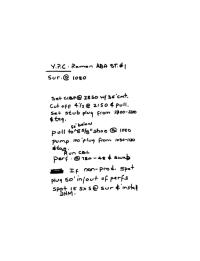 Y.P.C. Ramon ABA ST. #1
Sur. @ 1080
Set CIBP @ 2850 w/ 35' cmt.
Cut off 4½s @ 2150 & pull.
Set stub plug from 2200-2100
& tag.
50' below
pull to 8⅝" shoe @ 1080
pump 100' plug from 1030-1130
& tag.
Run CBL
perf. @ 780-48 & swab
If non-prod. spot
plug 50' in/out of perfs
Spot 15 sxs @ sur & install
DHM.